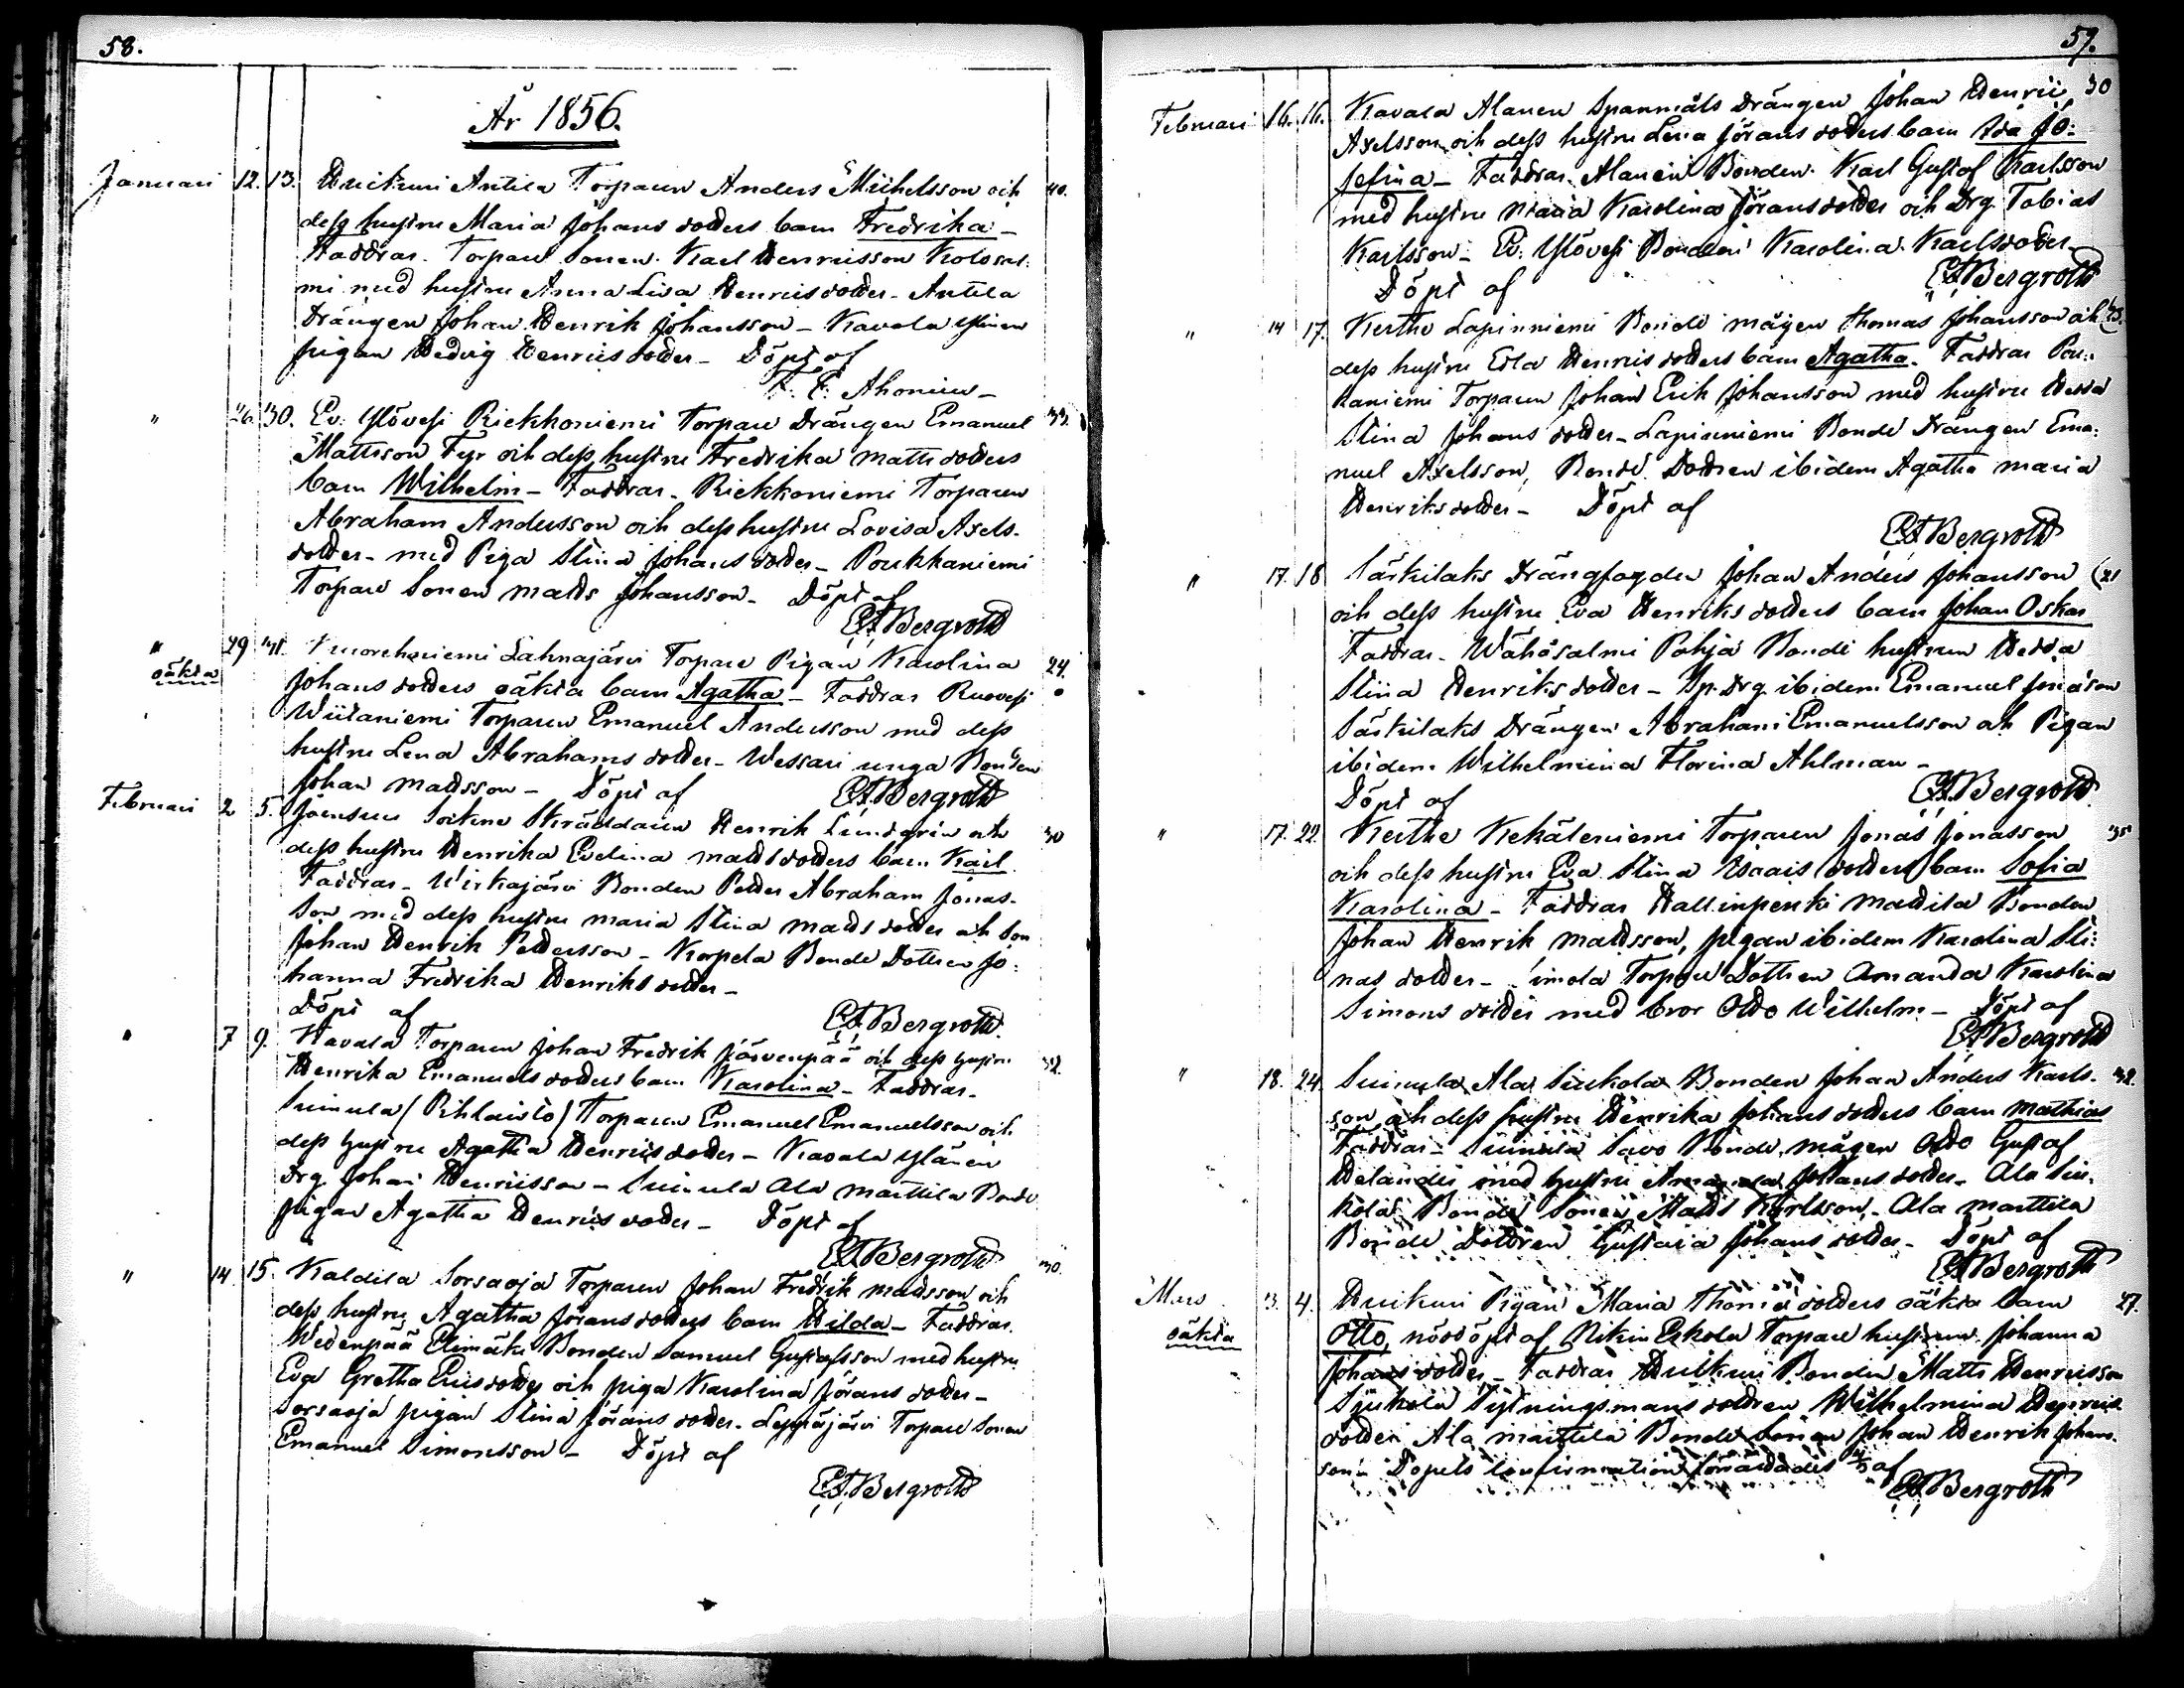 58.
År 1856.
Januari 12. 13. Antila Torparen Anders Michelsson och 40.
dess hustru Maria Johans dotters barn Fredrika –
Faddrar. Torpare Sonen Karl Henriksson
med hustru Anna Lisa Henriksdotter – Antila
Drängen Johan Henrik Johansson – Kavala Ylinen
pigan Hedvig Henriks dotter – Döpt af
F. E. Ahonius –
" 26. 30. Ylövesi Riekkoniemi Torpare Drängen Emanuel
Mattsson Fyr och dess hustru Fredrika Matts dotters
barn Wilhelm – Faddrar. Riekkoniemi Torparen
Abraham Andersson och dess hustru Lovisa Axels-
dotter – med Piga Stina Johans dotter – Poukkaniemi
Torpare Sonen Matts Johansson – Döpt af
Bergroth
" 29 31. Lahnajärvi Torpare Pigan Karolina 24.
oäkta Johans dotters oäkta barn Agatha – Faddrar Ruovesi
Wiitaniemi Torparen Emanuel Andersson med dess
hustru Lena Abrahams dotter – Wessari unga Bonden
Johan Mattsson – Döpt af Bergroth
Februari 2 5. Joensuu Sockne Skräddaren Henrik Lindgrén och 30
dess hustru Henrika Evelina Mattsdotters barn Karl
Faddrar – Wirkajärvi Bonden Petter Abraham Jonas-
son med dess hustru Maria Stina Matts dotter och Son
Johan Henrik Pettersson – Korpela Bonde Dottren Jo-
hanna Fredrika Henriks dotter –
Döpt af Bergroth
" 7 9. Kavala Torparen Johan Fredrik Järvenpää och dess hustru 32.
Henrika Emanuels dotters barn Karolina – Faddrar –
Suinula (Pihlaisto) Torparen Emanuel Emanuelsson och
dess hustru Agatha Henriksdotter – Kavala Ylänen
Drg. Johan Henriksson – Suinula Ala Marttila Bonde
pigan Agatha Henriks dotter – Döpt af
Bergroth
" 14. 15. Kaldila Sorsaoja Torparen Johan Fredrik Mattsson och 30.
dess hustru Agatha Jörans dotters barn Hilda – Faddrar
Wedenpää Elimäki Bonden Samuel Gustafsson med hustru
Eva Gretha Ericsdotter och piga Karolina Jörans dotter –
Sorsaoja pigan Stina Jörans dotter – Leppäjärvi Torpare Sonen
Emanuel Simonsson – Döpt af
Bergroth
59.
Februari 16. 16. Kavala Alanen Spanmåls Drängen Johan Henric 30
Axelsson och dess hustru Lena Jörans dotters barn Ida Jo-
sefina – Faddrar Alanen Bonden Karl Gustaf Karlsson
med hustru Maria Karolina Jöransdotter och Drg. Tobias
Karlsson – Ylövesi Bonden Karolina Karlsdotter –
Döpt af Bergroth
" 14 17. Kertte Lapinniemi Bonde mågen Thomas Johansson och
dess hustru Edla Henriks dotters barn Agatha. Faddrar Pou-
kaniemi Torparen Johan Erik Johansson med hustru Hedda
Stina Johans dotter – Lapinniemi Bonde Drängen Ema-
nuel Axelsson, Bonde Dottren ibidem Agatha Maria
Henriksdotter – Döpt af
Bergroth
" 17. 18 Särkilaks Drängfogden Johan Anders Johansson (21
och dess hustru Eva Henriks dotters barn Johan Oskar
Faddrar – Wähäsalmi Pohja Bonde hustrun Hedda
Stina Henriks dotter – Sp. drg. ibidem Emanuel Jonasson
Särkilaks Drängen Abraham Emanuelsson och Pigan
ibidem Wilhelmina Florina Ahlman –
Döpt af Bergroth
" 17. 22. Kertte Kekäleniemi Torparen Jonas Jonasson 35
och dess hustru Eva Stina Isaais (dotters) barn Sofia
Karolina – Faddrar Hallinpenki Mattila Bonden
Johan Henrik Mattsson, pigan ibidem Karolina
nas dotter – Torpare Dottren Amanda Karolina
Simons dotter med bror Otto Wilhelm – Döpt af
Bergroth
" 18. 24. Suinula Ala Siukola Bonden Johan Anders Karls- 32.
son och dess hustru Henrika Johans dotters barn Mathias
Faddrar – Suinula Savo Bonde mågen Otto Gustaf
Helander med hustru Amanda Johans dotter – Ala Siu-
kola Bonde Sonen Matts Karlsson – Ala Marttila
Bonde Dottren Gustava Johans dotter – Döpt af
Bergroth
Mars 3. 4. Pigan Maria Thomas dotters oäkta barn 27.
oäkta Otto, nöddöpt af Eskola Torpare hustrun Johanna
Johans dotter – Faddrar Bonden Matts Henriksson
Sjukola Sytningsmans dottren Wilhelmina Henriks
dotter Ala Marttila Bonde Sonen Johan Henrik Johans-
son – Dopets confirmation förrättades 4/3 af
Bergroth